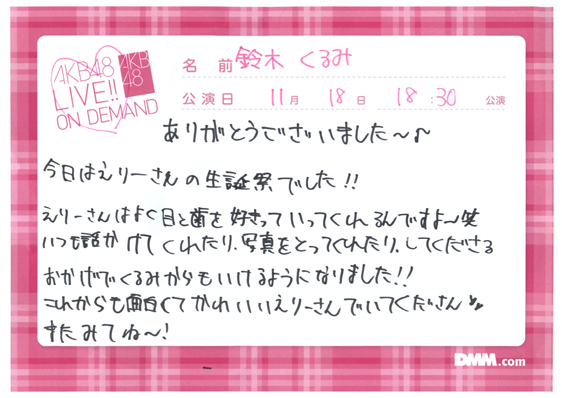 AKB48
LIVE!!
ON DEMAND
AKB
48
名 前 鈴木 くるみ
公演日 11月 18日 18:30 公演
ありがとうございました〜♪
今日はえりーさんの生誕祭でした!!
えりーさんはよく目と歯を好きっていってくれるんですよ〜笑
いつも話かけてくれたり、写真をとってくれたり、してくださる
おかげでくるみからもいけるようになりました!!
これからも面白くてかわいいえりーさんでいてくださん
またみてね〜!
DMM.com